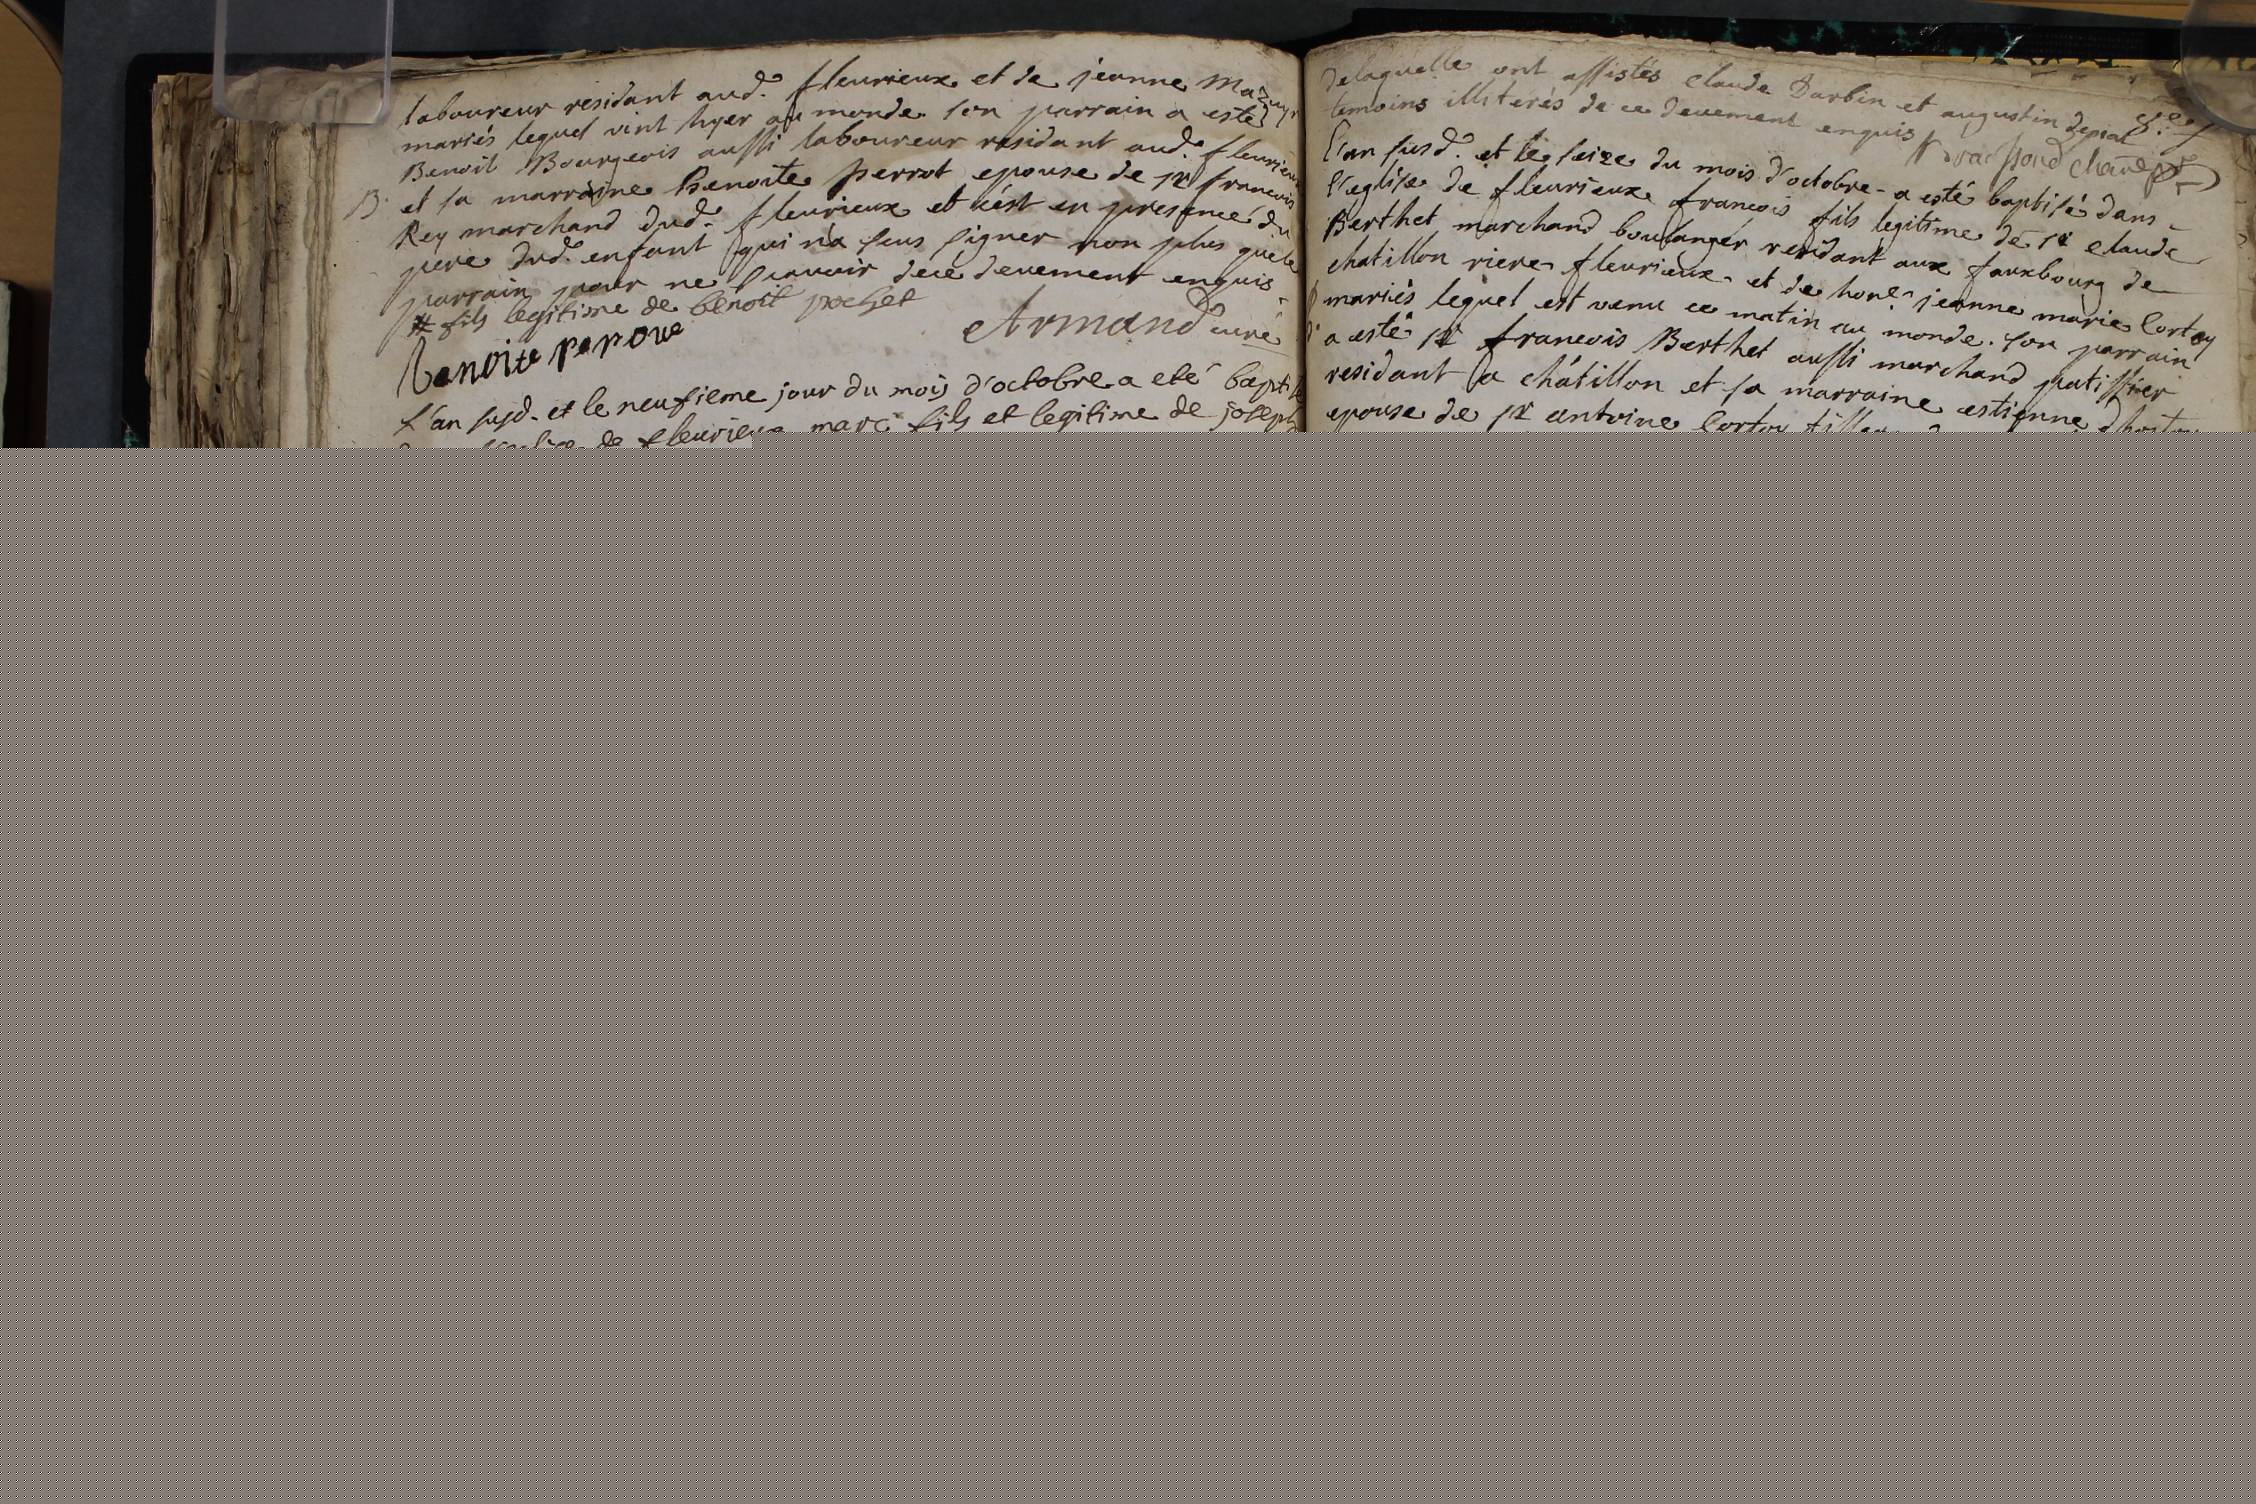 laboureur residant aud. fleurieux et de jeanne Mazuyr
mariés lequel vint hyer au monde son parrain a esté
Benoit Bourgeois aussi laboureur residant aud. fleurieux
B.
et sa marraine Benoite perrot epouse de sr francois
Rey marchand dud. fleurieux et c'est en presence du
pere dud. enfant qui n'a sceus signer non plus que le
parrain pour ne scavoir de ce deuement enquis
# fils legitime de benoit pochet
Armand curé
Benoite
L'an susd. et le neufieme jour du mois d'octobre a eté baptisé
de fleurieux marc fils et legitime de joseph
de laquelle ont assistés claude Darbin et augustin
temoins illiterés de ce deuement enquis
L'an susd. et le seize du mois d'octobre a esté baptisé dans
l'eglise de fleurieux francois fils legitime de sr claude
Berthet marchand boulanger residant aux fauxbourg de
chatillon riere fleurieux et de hon. jeanne marie Cortey
mariés lequel est venu ce matin au monde. son parrain
a esté sr francois Berthet aussi marchand patissier
residant a châtillon et sa marraine estienne
epouse de sr antoine